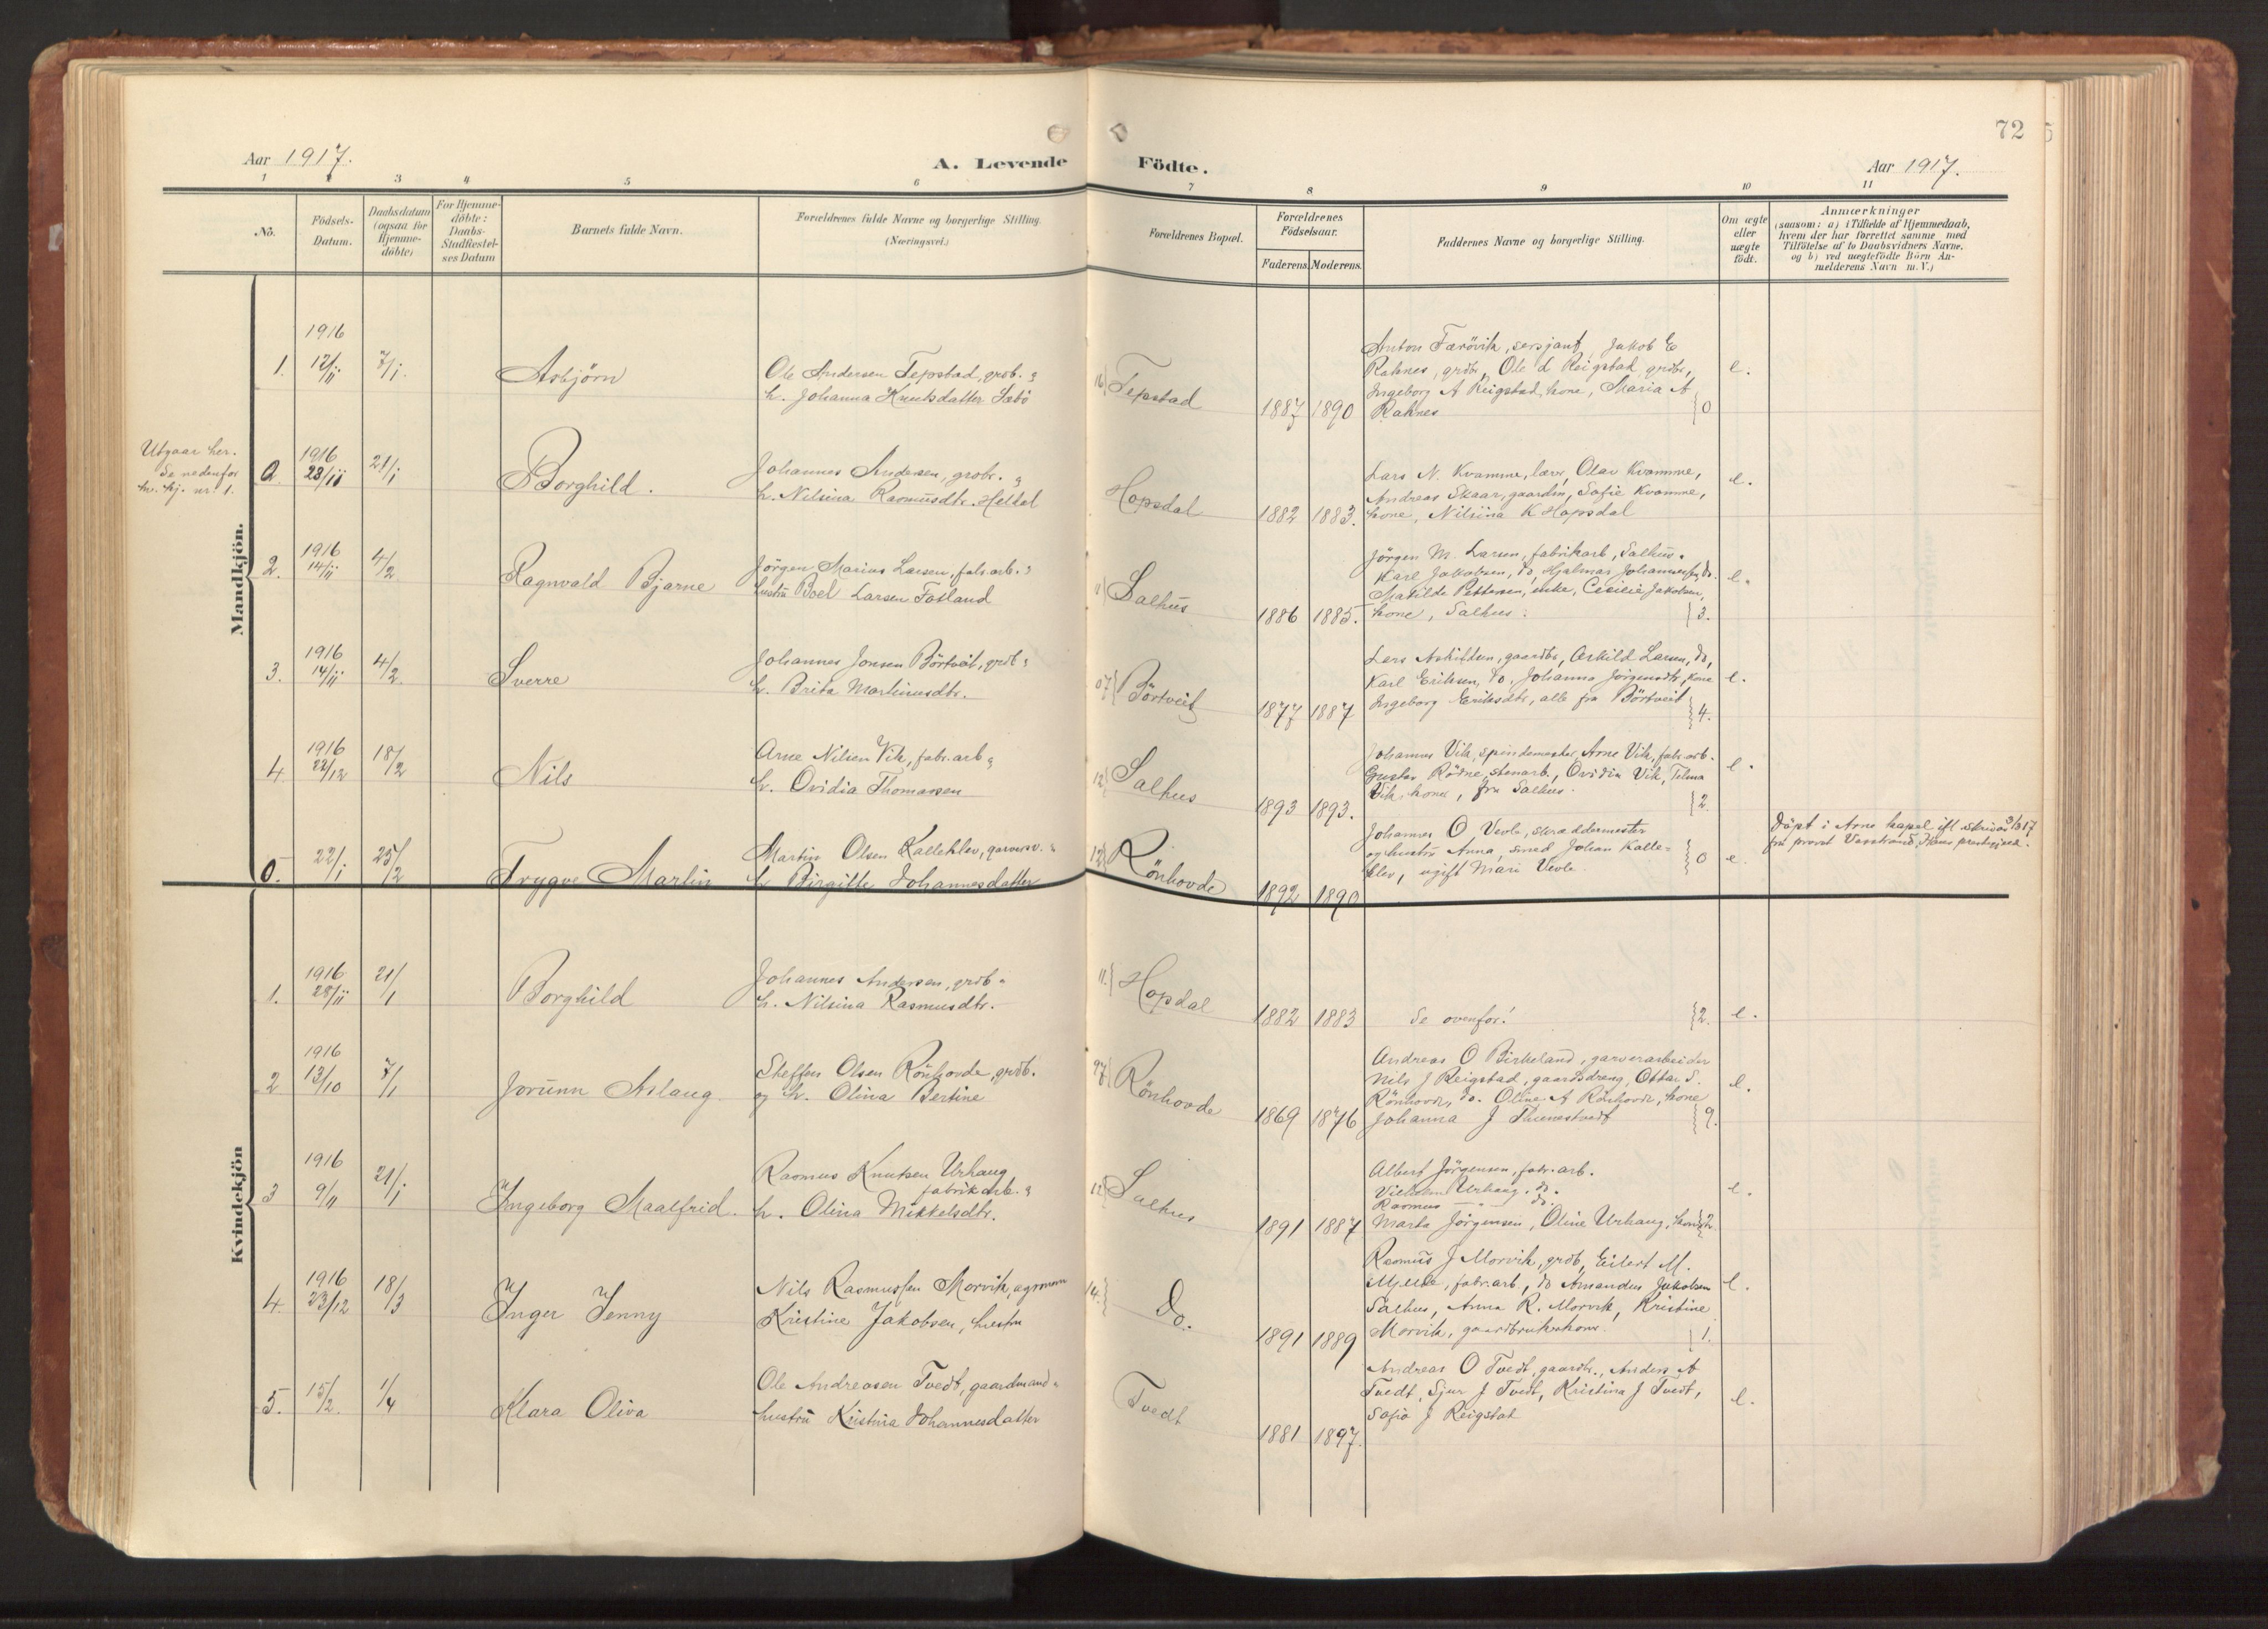 72
Aar 1917.
A. Levende Födte.
Aar 1917.
1 2 3 4 5 6 7 8 9 10 11
No.
Födsels-Datum.
Daabsdatum (ogsaa for Hjemme-döbte)
For Hjemme-döbte: Daabs-Stadfestel-ses Datum
Barnets fulde Navn.
Forældrenes fulde Navne og borgerlige Stilling.
(Næringsvei.)
Forældrenes Bopæl.
Forældrenes Födselsaar.
Faderens. Moderens.
Faddernes Navne og borgerlige Stilling.
Om ægte eller uægte födt.
Anmærkninger
(saasom: a) i Tilfælde af Hjemmedaab,
hvem der har forrettet samme med
Tilföielse af to Daabsvidners Navne,
og b) ved uægtefödte Börn An-
melderens Navn m. V.)
Mandkjön.
1916
1. 12/11 7/1. Asbjörn
Ole Andersen Tepstad, grdb. &
h. Johanna Knutsdatter Sæbö
16 Tepstad
1887 1890
Anton Færövik, sersjant, Jakob E
Rahnes, grdbr, Ole d Reigstad, grdbr,
Ingeborg A Reigstad, kone, Maria A
Rahnes } 0
e.
Utgaar her.
Se nedenfor
kv. kj. nr. 1.
1916
28/11 21/1 Borghild.
Johannes Andersen, grdbr. &
h. Nilsina Rasmusdtr. Heldal
Hopsdal
1882 1883.
Lars N. Kvamme, lærer, Olav Kvamme,
Andreas Skaar, gaardm, Sofie Kvamme,
kone, Nilsina K Hopsdal
e.
1916
2. 14/11 4/2 Ragnvald Bjarne
Jörgen Marius Larsen, fabr.arb. &
hustru Boel Larsen Fosland
11 Salhus
1886 1885.
Jörgen M. Larsen, fabrikarb, Salhus.
Karl Jakobsen, do, Hjalmar Johannessen, do.
Matilde Pettersen, enke, Cecilie Jakobsen,
kone, Salhus. } 3.
e.
1916
3. 14/11 4/2. Sverre
Johannes Jonsen Börtveit, grdb &
h. Brita Martinusdtr.
07 Börtveit
1877 1887
Lars Askildsen, gaardbr, Askild Larsen, do,
Karl Eriksen, do, Johanna Jörgensdtr, kone
Ingeborg Eriksdtr, alle fra Börtveit } 4.
e.
1916
4. 22/12 18/2 Nils
Arne Nilsen Vik, fabr.arb &
h. Ovidia Thomassen
12 Salhus
1893 1893.
Johannes Vik, spindemester, Arne Vik, fabr.arb.
Gustav Rödne, stenarb., Ovidia Vik, Telma
Vik, kone, fra Salhus. } 2.
e.
0. 22/1 25/2 Trygve Martin
Martin Olsen Kalleklev, garversv. &
h. Birgitte Johannesdatter
12 Rönhovde
1892 1890
Johannes O Vevle, skræddermester
og hustru Anna, smed Johan Kalle=
klev, ugift Mari Vevle. } 0
e.
Döpt i Arne kapel ifl skriv av 3/3 17
fra prost
Kvindekjön
1916
1. 28/11 21/1 Borghild
Johannes Andersen, grdb &
h. Nilsina Rasmusdtr.
11. Hopsdal
1882 1883
Se ovenfor! } 2.
e.
1916
2 13/10 7/1 Jorunn Aslaug.
Steffen Olsen Rönhovde, grdb.
og h. Olina Bertine
97 Rönhovde
1869 1876
Andreas O Birkeland, garverarbeider
Nils J Reigstad, gaardsdreng, Ottar S.
Rönhovde, do. Oline A Rönhovde, kone
Johanna J } 9.
e.
1916
3 9/11 21/1 Ingeborg Maalfrid.
Rasmus Knutsen Urhaug
fabrikarb. &
h. Olina Mikkelsdtr.
12 Salhus
1891 1887
Albert Jörgensen, fabr.arb.
Vilhelm Urhaug, do.
Rasmus — do.
Marta Jörgensen, Oline Urhaug, kone } 2
e.
1916
4. 23/12 18/3 Inger Jenny
Nils Rasmussen Morvik, agronom
Kristine Jakobsen, hustru
14. Do.
1891 1889
Rasmus J Morvik, grdb, Eilert M.
Mjelde, fabr.arb, do Amandus Jakobsen
Salhus, Anna R. Morvik, Kristine
Morvik, gaardbrukerkone. } 1.
e.
5. 15/2. 1/4 Klara Oliva
Ole Andreasen Tvedt, gaardmand &
hustru Kristina Johannesdatter
Tvedt
1881 1897.
Andreas O Tvedt, gaardbr., Anders A
Tvedt, Sjur J Tvedt, Kristina J Tvedt,
Sofia J Reigstad
e.